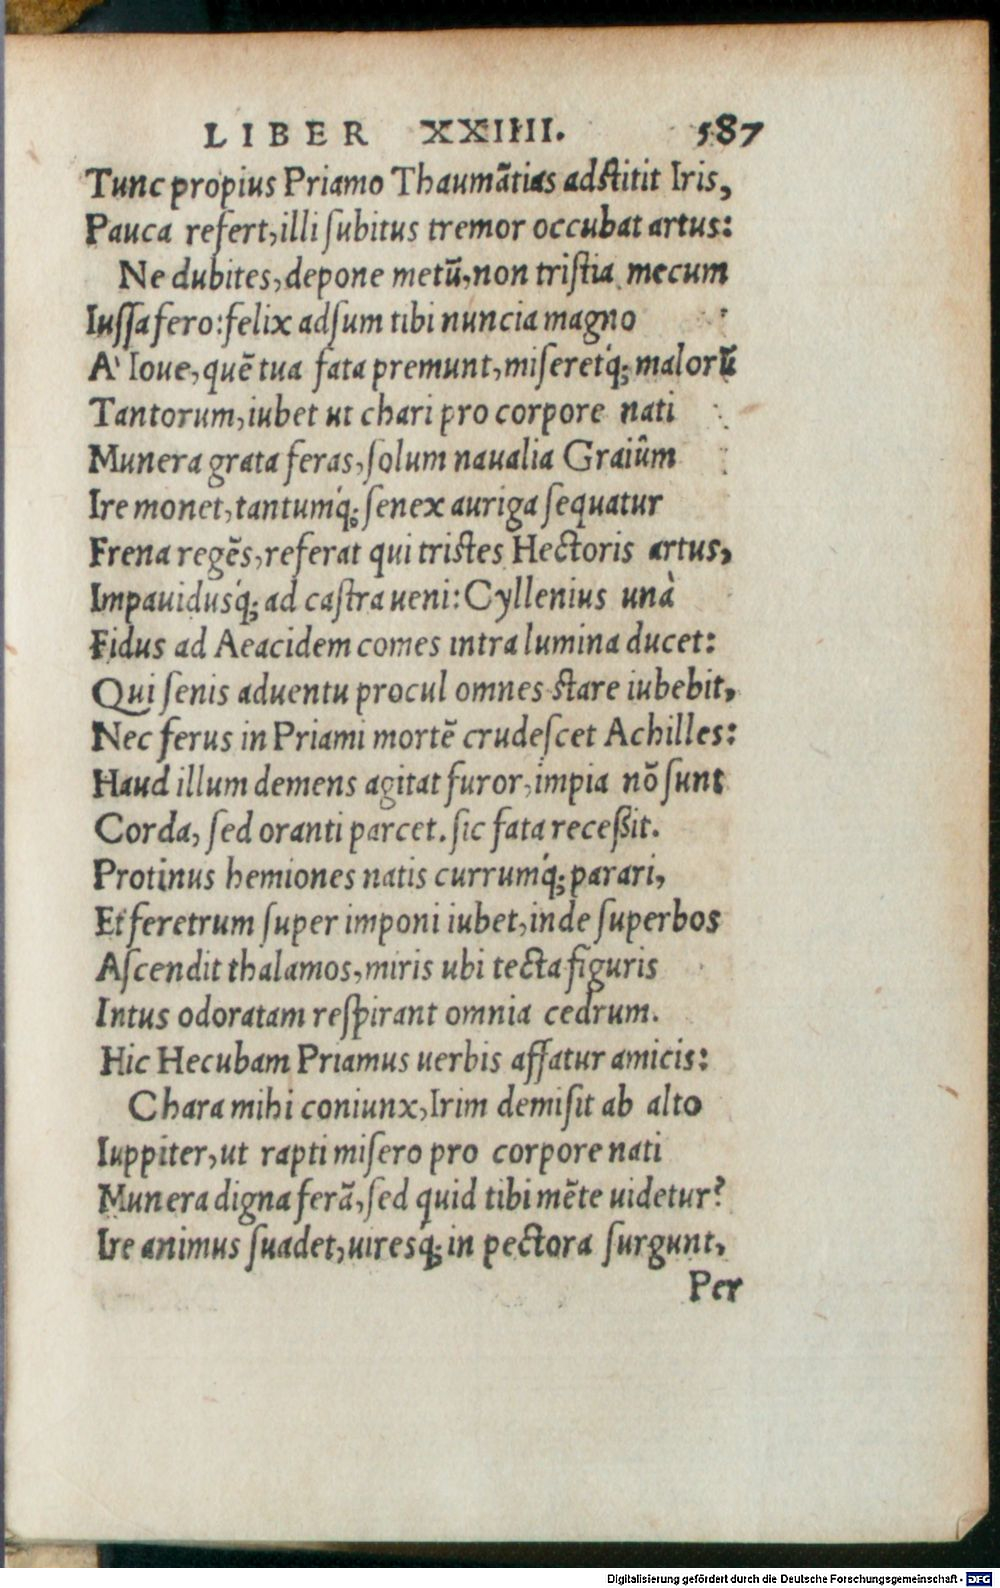 LIBER XXIIII. 587
Tunc propius Priamo Thaumãtias adstitit Iris,
Pauca refert, illi ſubitus tremor occubat artus:
Ne dubites, depone metũ, non triſtia mecum
Iuſſa fero: felix adſum tibi nuncia magno
A' Ioue, quẽ tua fata premunt, miſeretq́; malorũ
Tantorum, iubet ut chari pro corpore nati
Munera grata feras, ſolum naualia Graiûm
Ire monet, tantumq́; ſenex auriga ſequatur
Frena regẽs, referat qui tristes Hectoris artus,
Impauidusq́; ad caſtra ueni: Cyllenius unà
Fidus ad Aeacidem comes intra lumina ducet:
Qui ſenis aduentu procul omnes stare iubebit,
Nec ferus in Priami mortẽ crudeſcet Achilles:
Haud illum demens agitat furor, impia nõ ſunt
Corda, ſed oranti parcet. ſic fata receßit.
Protinus hemiones natis currumq́; parari,
Et feretrum ſuper imponi iubet, inde ſuperbos
Aſcendit thalamos, miris ubi tecta figuris
Intus odoratam reſpirant omnia cedrum.
Hic Hecubam Priamus uerbis affatur amicis:
Chara mihi coniunx, Irim demiſit ab alto
Iuppiter, ut rapti miſero pro corpore nati
Munera digna ferã, ſed quid tibi mẽte uidetur?
Ire animus ſuadet, uiresq́; in pectora ſurgunt,
Per
Digitalisierung gefördert durch die Deutsche Forschungsgemeinschaft - DFG